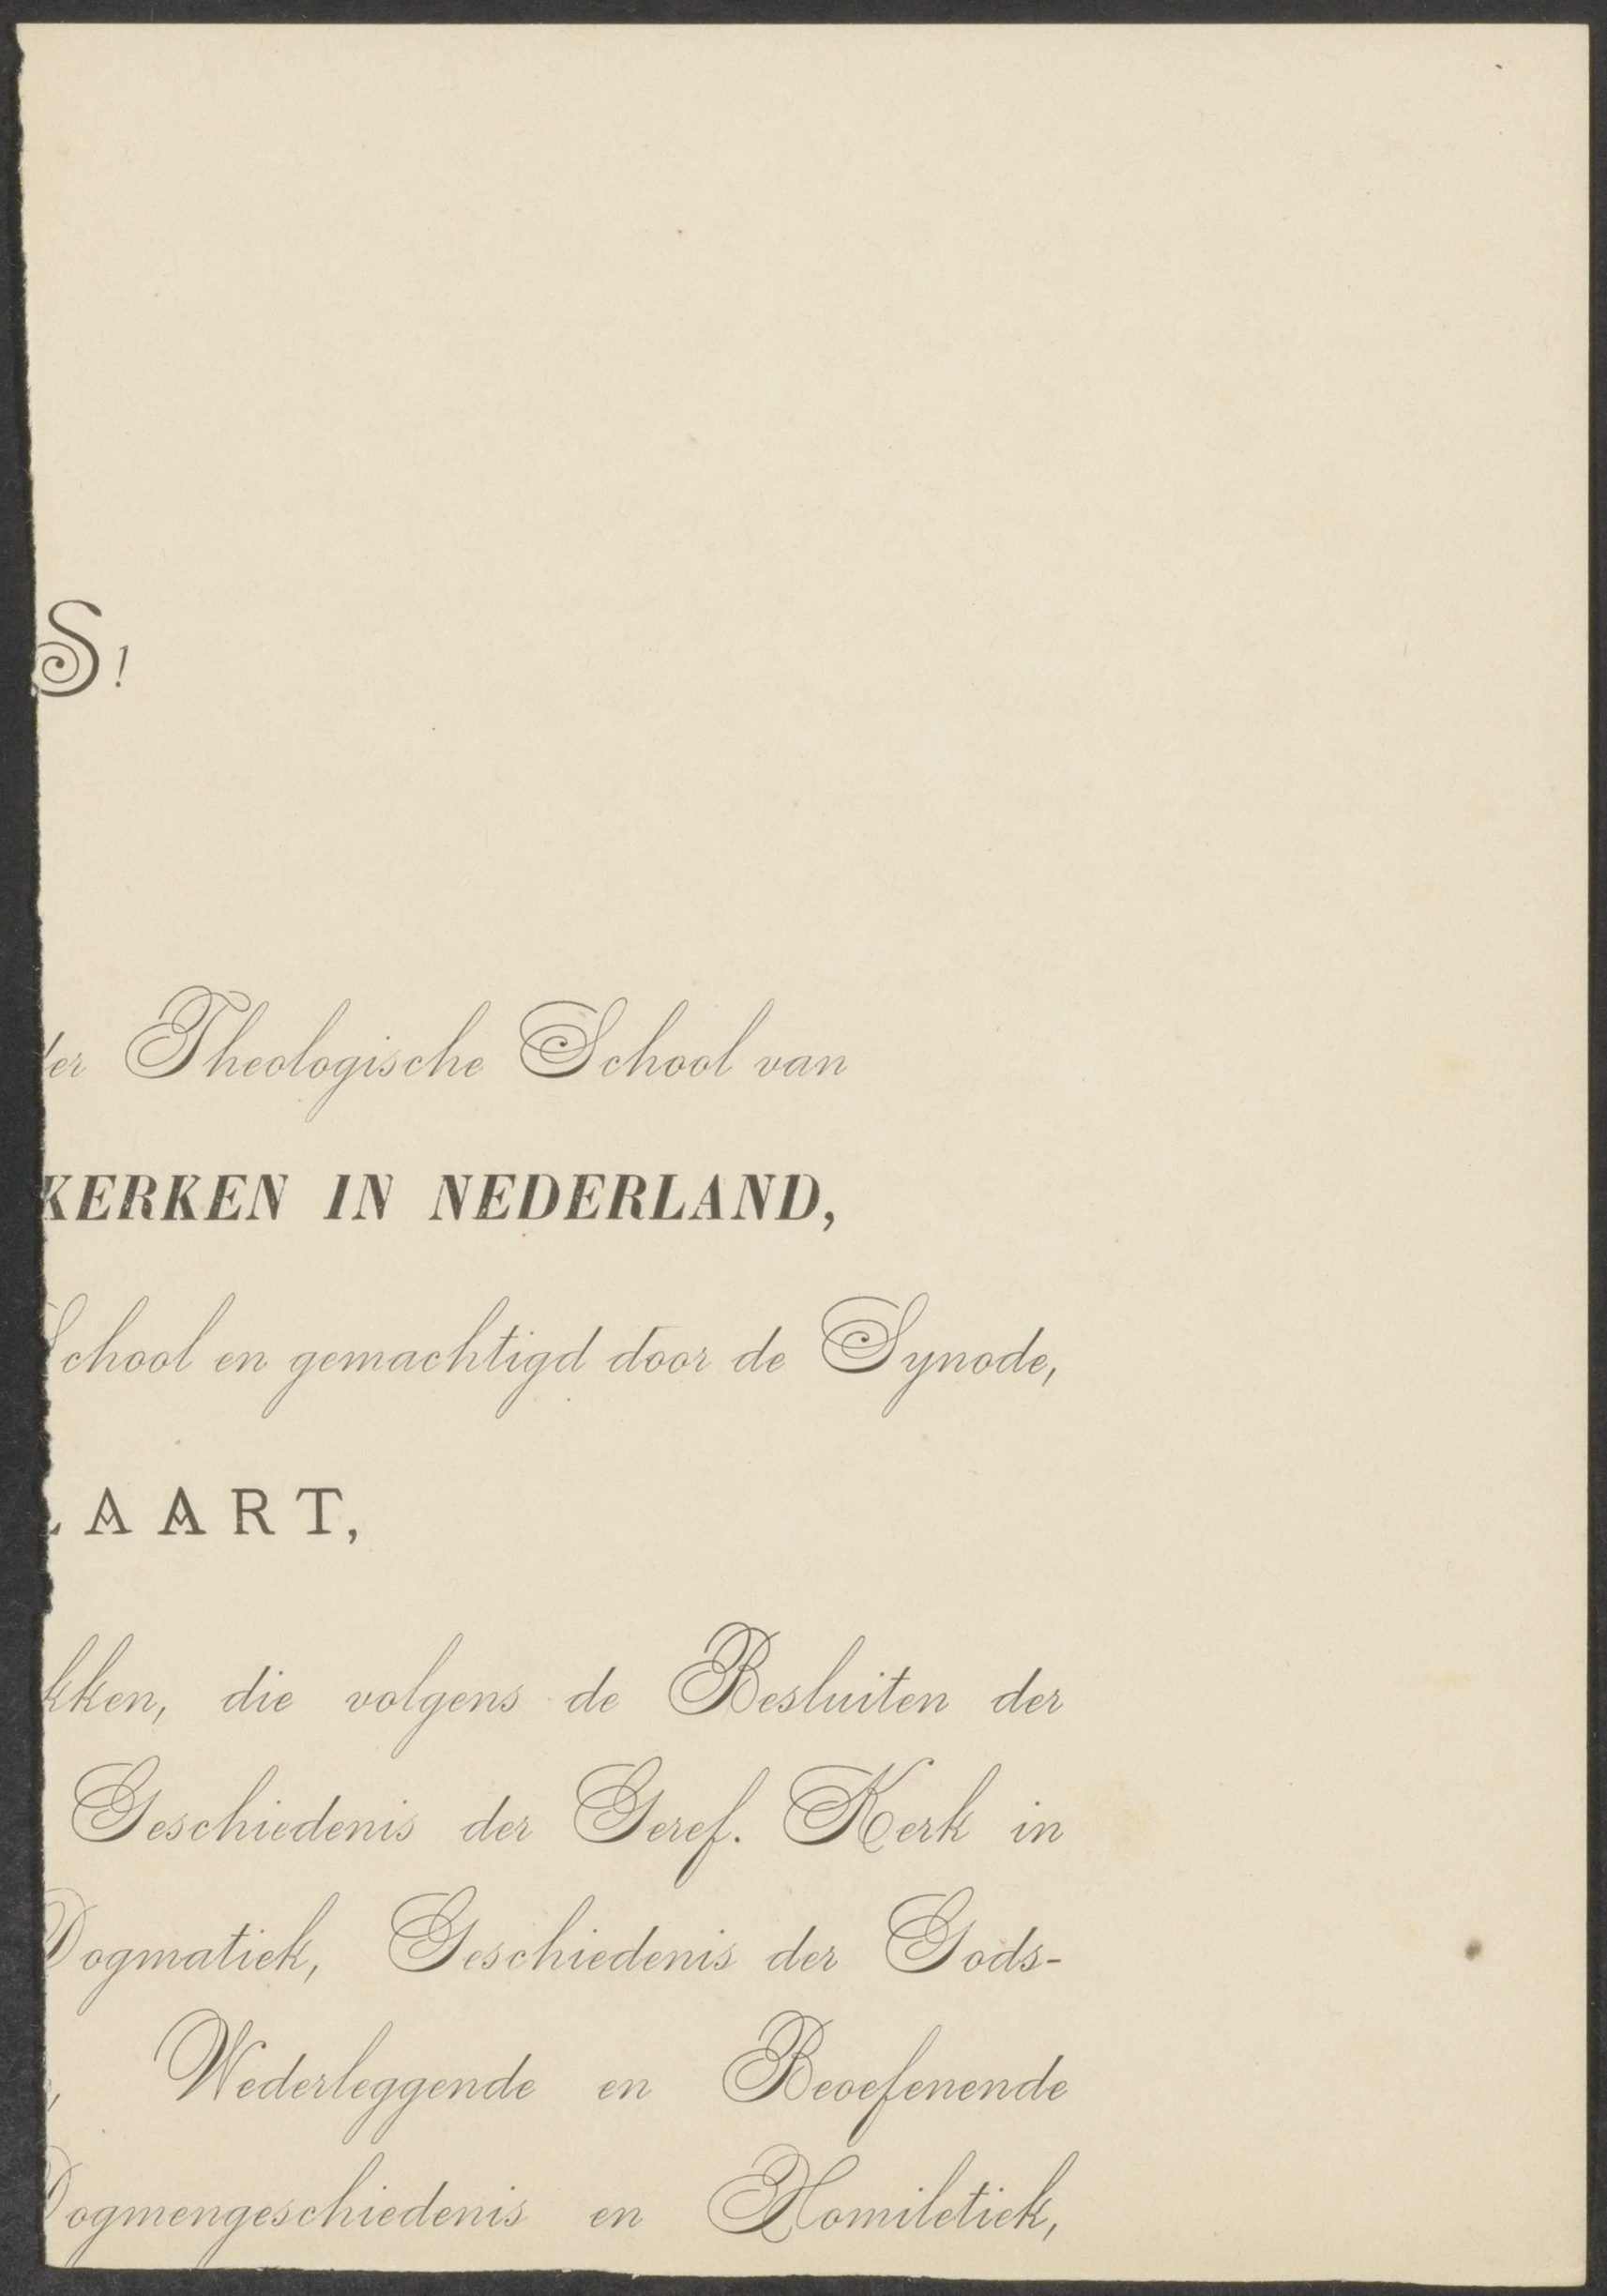 S!
der Theologische School van
KERKEN IN NEDERLAND,
School en gemachtigd door de Synode,
LAART,
kken, die volgens de Besluiten der
Geschiedenis der Geref. Kerk in
Dogmatiek, Geschiedenis der Gods-
, Wederleggende en Beoefenende
Dogmengeschiedenis en Homiletiek,